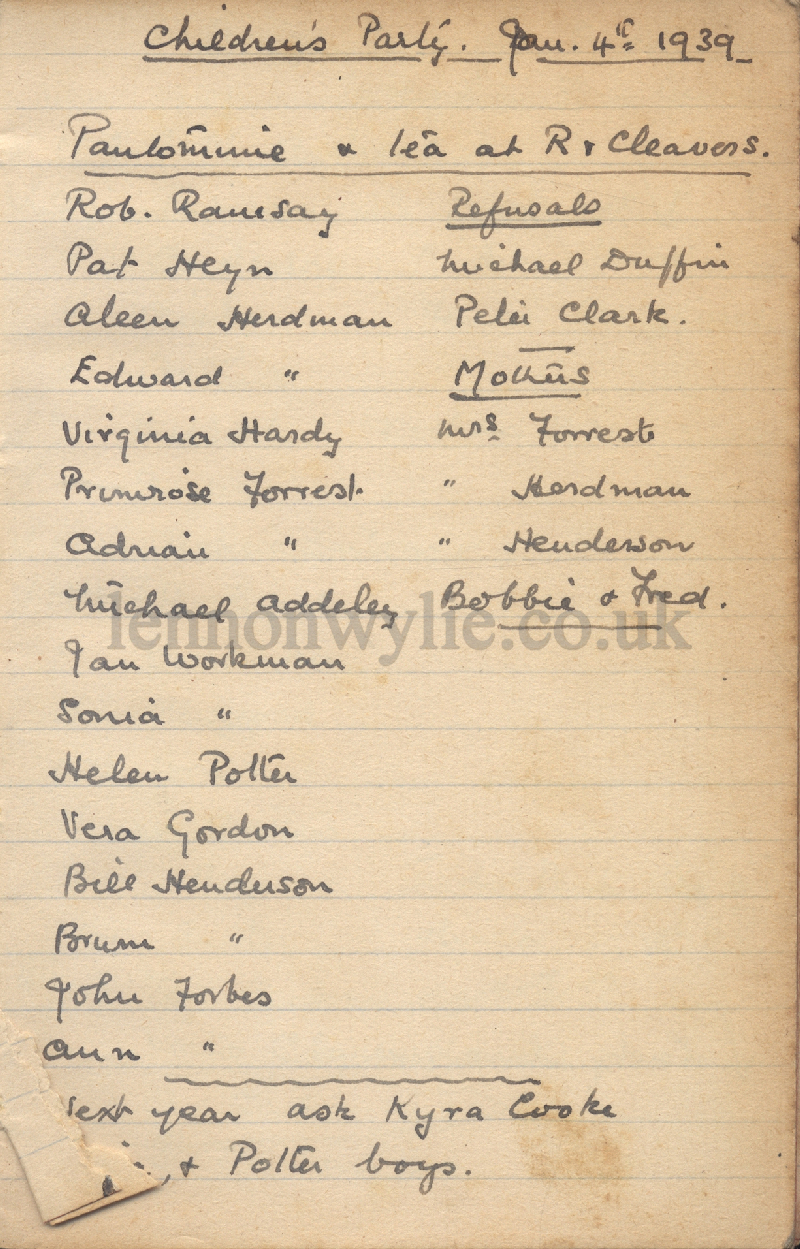 Children's Party. Jan. 4th 1939
Pantomime & tea at R & Cleavers.
Rob. Ramsay Refusals
Pat Heyn Michael Duffin
Aleen Herdman Peter Clark.
Edward " Mothers
Virginia Hardy Mrs. Forrest
Primrose Forrest " Herdman
Adrian " " Henderson
Michael Addeley Bobbie & Fred.
lennonwylie.co.uk
Ian Workman
Sonia "
Helen Potter
Vera Gordon
Bill Henderson
Brum "
John Forbes
Ann "
Next year ask Kyra Cooke
& Potter boys.